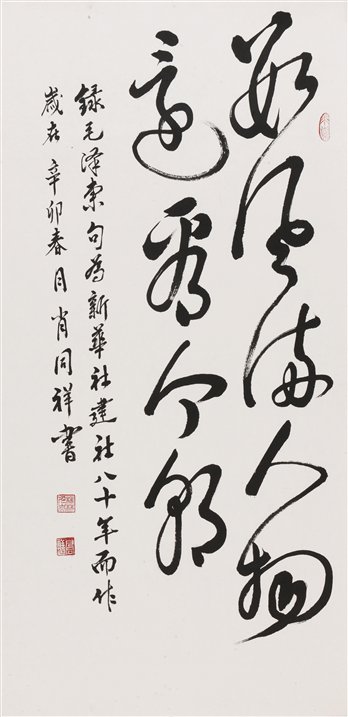 數風流人物
還看今朝
録毛澤東句為新華社建社八十年而作
歲在辛卯春月肖同祥書